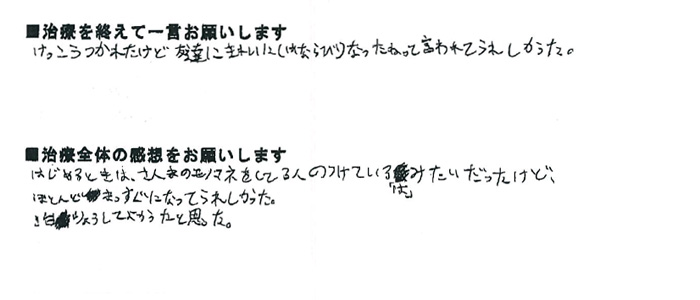 ■治療を終えて一言お願いします
けっこうつかれたけど友達にきれいに(はならびが)なったねって言われてうれしかった。
■治療全体の感想をお願いします
はじめるときは、さんまのモノマネをしてる人のつけている「は」みたいだったけど、
ほとんどまっすぐになってうれしかった。
ちりょうしてよかったと思った。